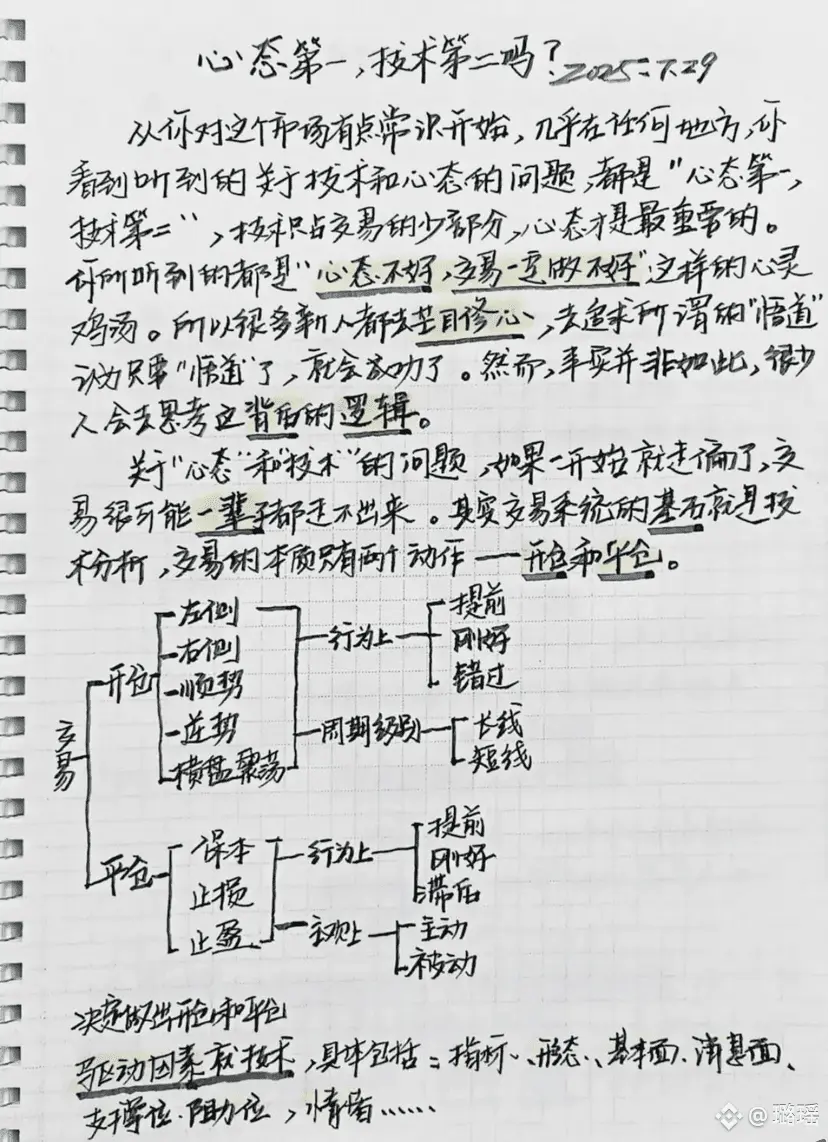 心态第一,技术第二吗? 2025.7.29
从你对这个市场有点常识开始,几乎在任何地方,你
看到听到的关于技术和心态的问题,都是“心态第一,
技术第二”,技术只占交易的少部分,心态才是最重要的。
你所听到的都是“心态不好,交易一定做不好”这样的心灵
鸡汤。所以很多新人都去盲目修心,去追求所谓的“悟道”
认为只要“悟道”了,就会成功了。然而,事实并非如此,很少
人会去思考这背后的逻辑。
关于“心态”和“技术”的问题,如果一开始就走偏了,交
易很可能一辈子都走不出来。其实交易系统的基石就是技
术分析,交易的本质只有两个动作——开仓和平仓。
交易
开仓
左侧
右侧
顺势
逆势
横盘震荡
行为上
提前
刚好
错过
周期级别
长线
短线
平仓
保本
止损
止盈
行为上
提前
刚好
滞后
主观上
主动
被动
决定做出开仓和平仓
驱动因素就技术,具体包括:指标、形态、基本面、消息面、
支撑位、阻力位,情绪……
@璐瑶